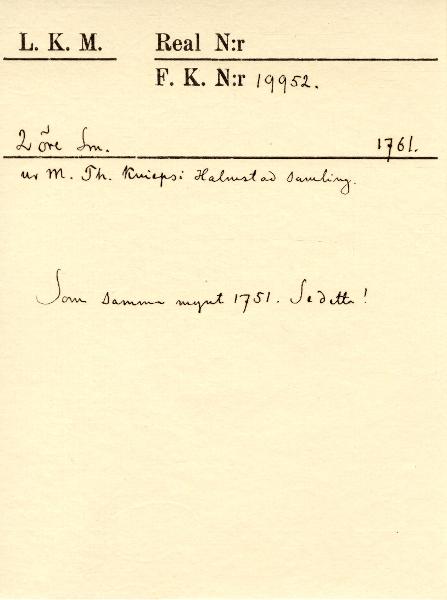 L. K. M. Real N:r
F. K. N:r 19952.
2 öre Sm. 1761.
ur M. Th. Kniepsi Halmstad samling.
Som samma mynt 1751. Se detta!